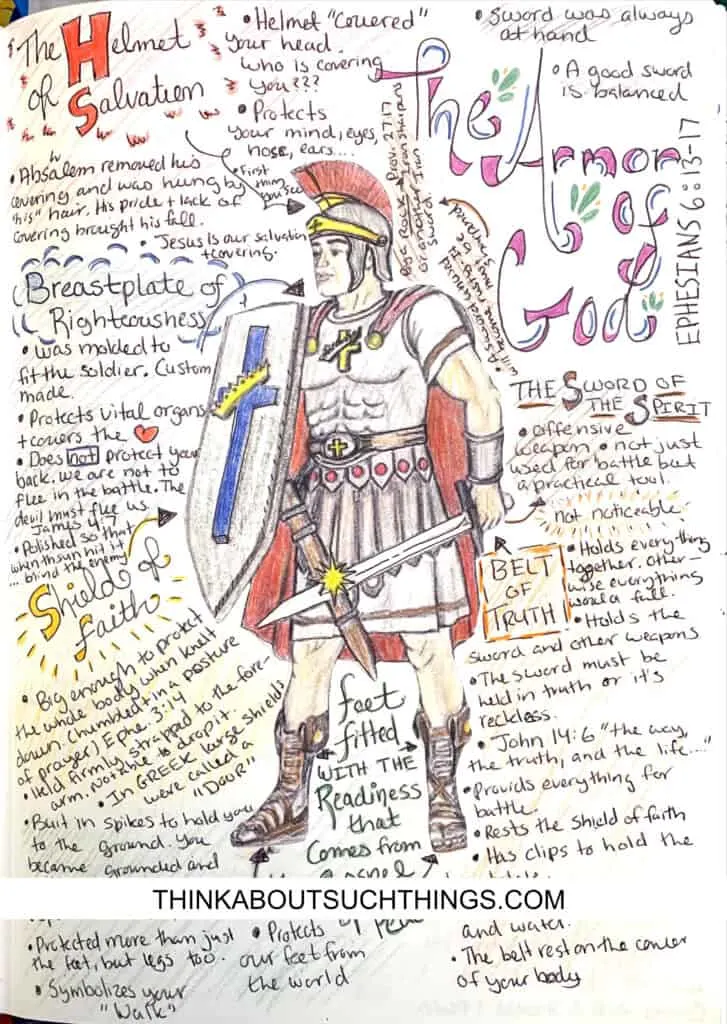 The Helmet
of Salvation
• Helmet "Covered"
your head.
Who is covering
you???
• Protects
your mind, eyes,
nose, ears....
• First
thing
you see
• Absalem removed his
covering and was hung by
"his" hair. His pride + lack of
covering brought his fall.
• Jesus is our salvation
+ covering.
• Sword was always
at hand
• A good sword
is balanced
The Armor
of
God
EPHESIANS 6:13-17
By a Rock
or another Iron
Sword.
Prov. 27:17
Iron sharpens
Iron
Breastplate of
Righteousness
• was molded to
fit the soldier. Custom
made.
• Protects vital organs
+ covers the
• Does not protect your
back. we are not to
flee in the battle. The
devil must flee us
James 4:7
• Polished so that
when the sun hit it
... blind the enemy
THE SWORD OF
THE SPIRIT
• offensive
weapon • not just
used for battle but
a practical tool.
not noticeable
BELT
OF
TRUTH
• Holds everything
together. Other-
wise everything
would fall.
• Holds the
sword and other weapons
• The sword must be
held in truth or it's
reckless.
• John 14:6 "the way,
the truth, and the life...."
• Provides everything for
battle.
• Rests the shield of faith
• Has clips to hold the
and water.
• The belt rest on the center
of your body
Shield of
Faith
• Big enough to protect
the whole body when knelt
down. (humbled in a posture
of prayer) Ephe. 3:14
• Held firmly, strapped to the fore-
arm. Not able to drop it.
• In GREEK large shields
were called a
"DOOR"
feet
fitted
WITH THE
Readiness
that
Comes from
• Built in spikes to hold you
to the ground. You
became grounded and
THINKABOUTSUCHTHINGS.COM
• Protected more than just
the feet, but legs too.
• Symbolizes your
"Walk"
• Protects
our feet from
the world